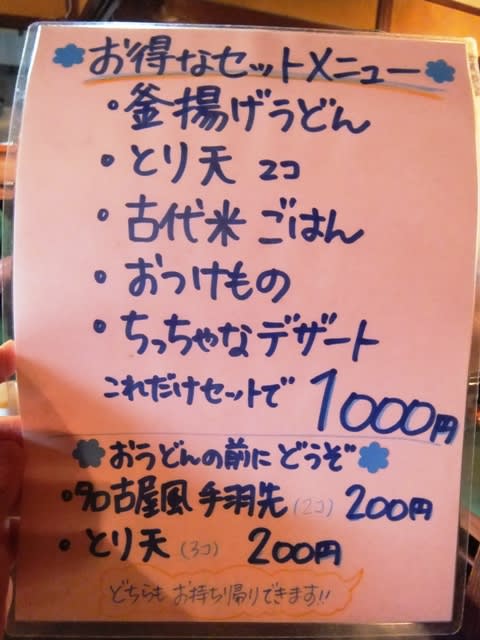 お得なセットメニュー
・釜揚げうどん
・とり天 2コ
・古代米 ごはん
・おつけもの
・ちっちゃなデザート
これだけセットで 1000円
おうどんの前に どうぞ
・名古屋風 手羽先 (2コ) 200円
・とり天 (3コ) 200円
どちらも お持ち帰りできます!!